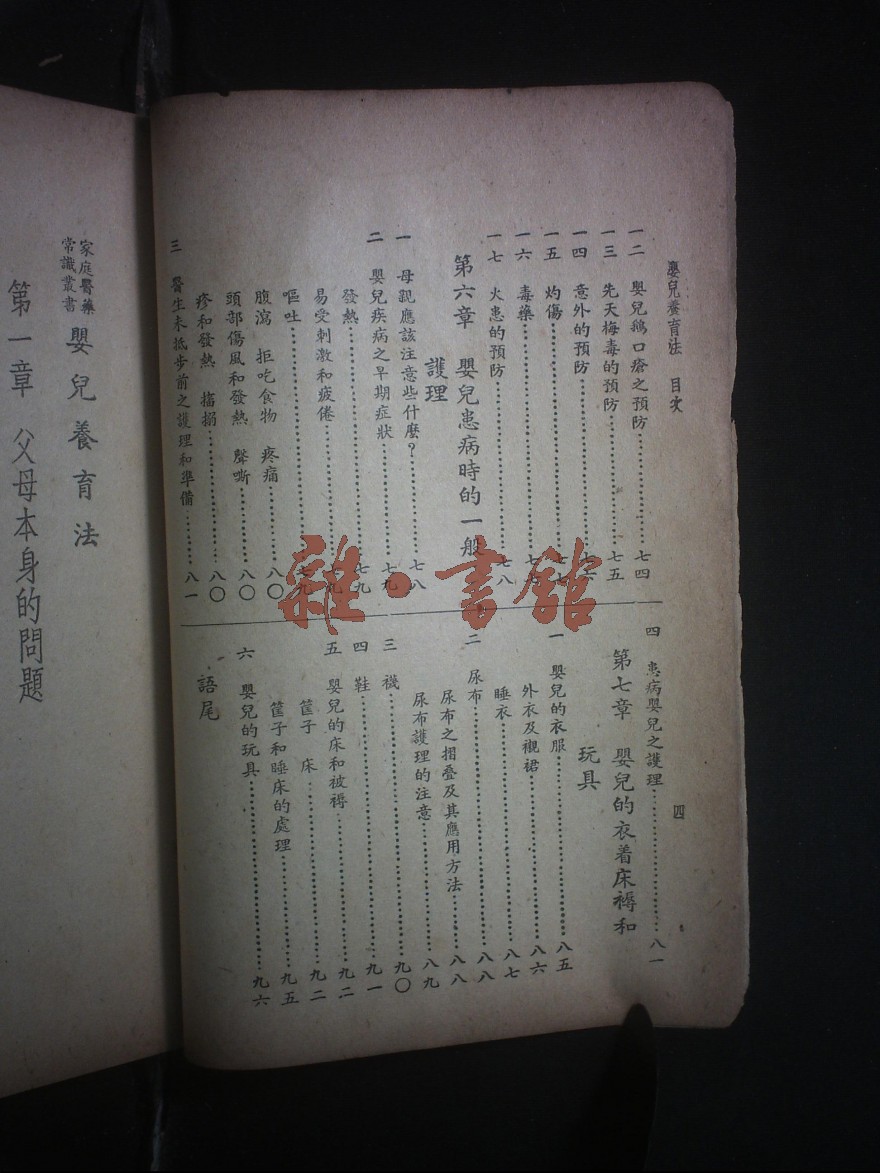 嬰兒養育法　目次
四
一二　嬰兒鵝口瘡之預防…………七四
一三　先天梅毒的預防…………七五
一四　意外的預防…………七六
一五　灼傷…………七七
一六　毒藥…………七七
一七　火患的預防…………七八
第六章　嬰兒患病時的一般
護理
一　母親應該注意些什麼？…………七八
二　嬰兒疾病之早期症狀…………七九
發熱…………七九
易受刺激和疲倦…………七九
嘔吐…………七九
腹瀉　拒吃食物　疼痛…………八〇
頭部傷風和發熱　聲嘶…………八〇
疹和發熱　搐搦…………八〇
三　醫生未抵步前之護理和準備…………八一
四　患病嬰兒之護理…………八一
第七章　嬰兒的衣着床褥和
玩具
一　嬰兒的衣服…………八五
外衣及襯裙…………八六
睡衣…………八七
二　尿布…………八八
尿布之摺疊及其應用方法…………八八
尿布護理的注意…………八九
三　襪…………九〇
四　鞋…………九一
五　嬰兒的床和被褥…………九二
筐子　床…………九二
筐子和睡床的處理…………九五
六　嬰兒的玩具…………九六
語尾
家庭醫藥
常識叢書
嬰兒養育法
第一章　父母本身的問題
雜·書館